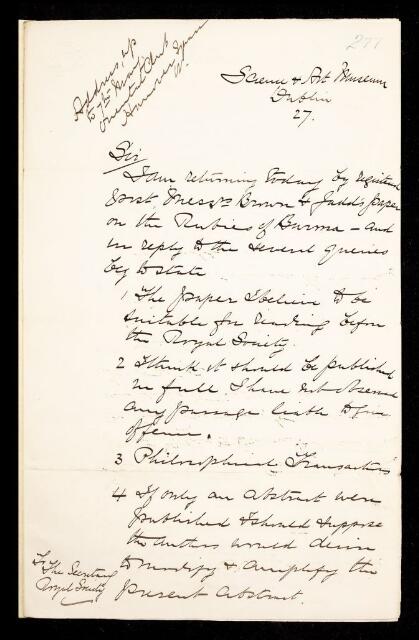 277
Address, up
to 7th May
Oriental Club
Hanover Square
W.
Science & Art Museum
Dublin
27.
Sir/
I am returning today by registered
post Messrs Brown & Judd's paper
on the Rubies of Burma – and
in reply to the several queries
beg to state
1 The paper I believe to be
suitable for reading before
the Royal Society.
2 I think it should be published
in full. I have not observed
any passage liable to give
offence.
3 Philosophical Transactions
4 If only an abstract were
published I should suppose
the authors would desire
to modify & amplify the
present abstract.
To
The Secretary
Royal Society